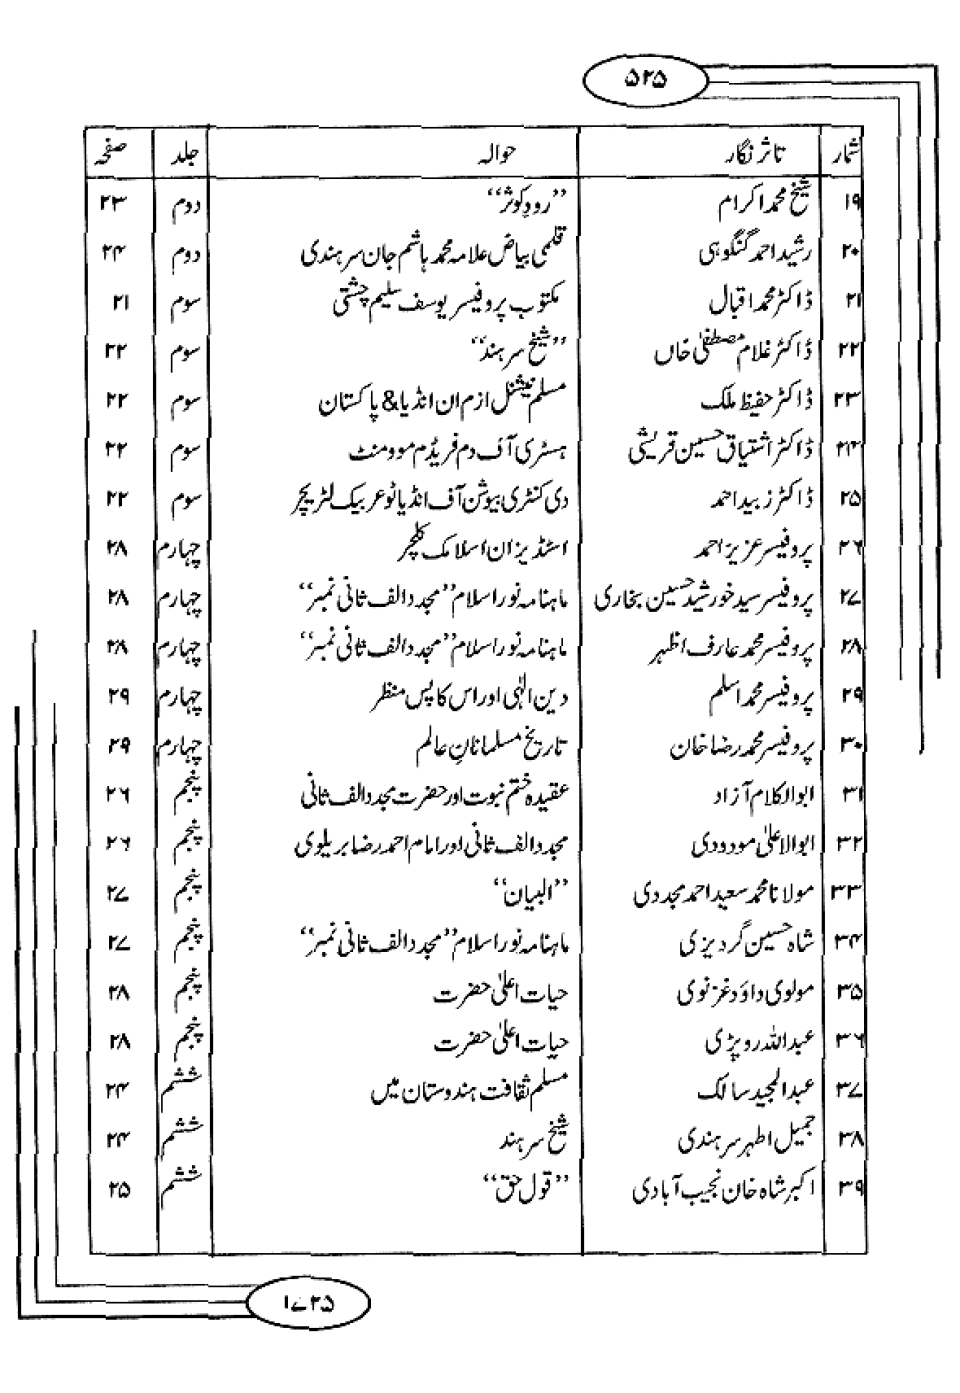 ۵۲۵
شمار تاثر نگار حوالہ جلد صفحہ
۱۹ شیخ محمد اکرام ”رودِ کوثر“ دوم ۲۳
۲۰ رشید احمد گنگوہی قلمی بیاض علامہ محمد ہاشم جان سرہندی دوم ۲۴
۲۱ ڈاکٹر محمد اقبال مکتوب پروفیسر یوسف سلیم چشتی سوم ۲۱
۲۲ ڈاکٹر غلام مصطفیٰ خاں ”شیخ سرہند“ سوم ۲۲
۲۳ ڈاکٹر حفیظ ملک مسلم نیشنل ازم ان انڈیا & پاکستان سوم ۲۲
۲۴ ڈاکٹر اشتیاق حسین قریشی ہسٹری آف دم فریڈم موومنٹ سوم ۲۲
۲۵ ڈاکٹر زبید احمد دی کنٹری بیوشن آف انڈیا ٹو عربیک لٹریچر سوم ۲۲
۲۶ پروفیسر عزیز احمد اسٹڈیز ان اسلامک کلچر چہارم ۲۸
۲۷ پروفیسر سید خورشید حسین بخاری ماہنامہ نور اسلام ”مجدد الف ثانی نمبر“ چہارم ۲۸
۲۸ پروفیسر محمد عارف اظہر ماہنامہ نور اسلام ”مجدد الف ثانی نمبر“ چہارم ۲۸
۲۹ پروفیسر محمد اسلم دین الٰہی اور اس کا پس منظر چہارم ۲۹
۳۰ پروفیسر محمد رضا خان تاریخ مسلمانانِ عالم چہارم ۲۹
۳۱ ابوالکلام آزاد عقیدہ ختم نبوت اور حضرت مجدد الف ثانی پنجم ۲۶
۳۲ ابوالاعلیٰ مودودی مجدد الف ثانی اور امام احمد رضا بریلوی پنجم ۲۶
۳۳ مولانا محمد سعید احمد مجددی ”البیان“ پنجم ۲۷
۳۴ شاہ حسین گردیزی ماہنامہ نور اسلام ”مجدد الف ثانی نمبر“ پنجم ۲۷
۳۵ مولوی داؤد غزنوی حیات اعلیٰ حضرت پنجم ۲۸
۳۶ عبداللہ روپڑی حیات اعلیٰ حضرت پنجم ۲۸
۳۷ عبدالمجید سالک مسلم ثقافت ہندوستان میں ششم ۲۴
۳۸ جمیل اطہر سرہندی شیخ سرہند ششم ۲۴
۳۹ اکبر شاہ خان نجیب آبادی ”قول حق“ ششم ۲۵
۱۷۲۵